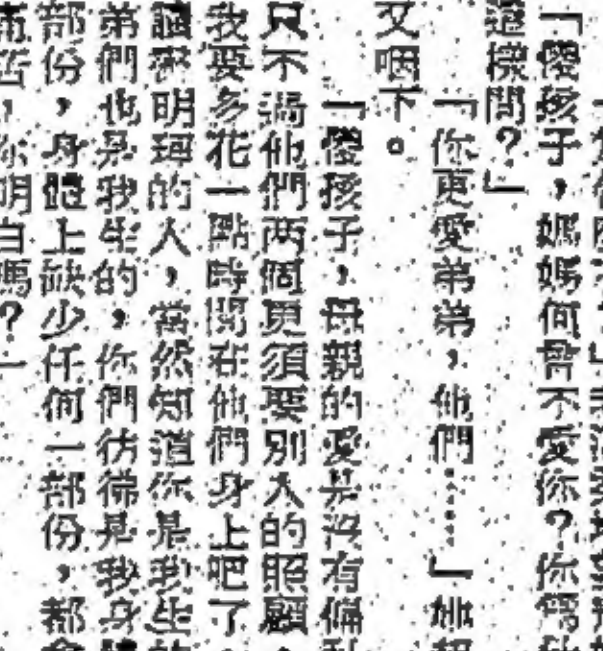 「傻孩子，媽媽何曾不愛你？你
這樣問？」
「你更愛弟弟，他們……」她
又咽下。
「傻孩子，母親的愛是沒有偏
只不過他們两個更須要別人的照顧，
我要多花一點時間在他們身上吧了
讀 明 的人，當然知道你是我生的
弟們也是我生的，你們彷彿是我身體
部份，身體上缺少任何一部份，都會
痛苦，你明白嗎？」